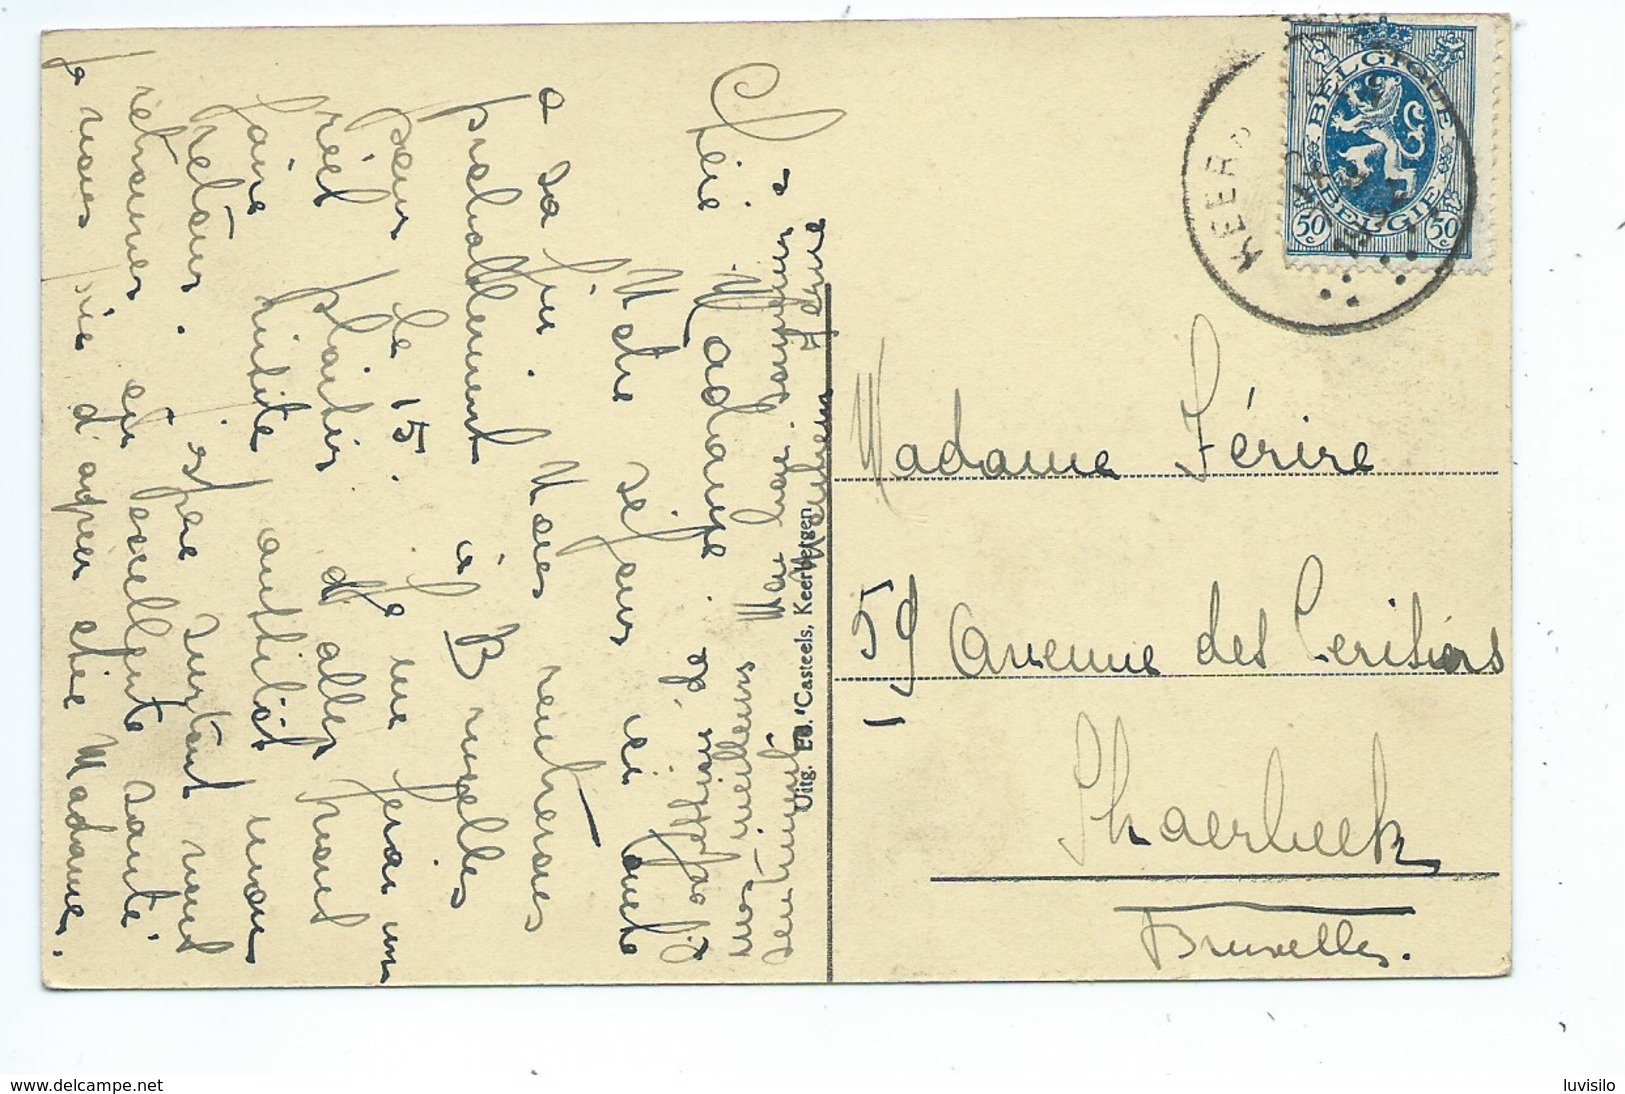 Chère Madame.
Notre séjour ici touche
a sa fin. Nous rentrerons
probablement à Bruxelles
pour le 15. Je me ferai un
réel plaisir d'aller vous
faire visite aussitôt mon
retour. J'espère surtout vous
retrouver en excellente santé.
Je vous prie d'agréer chère Madame,
mes meilleurs
sentiments
Mon bon souvenir à
Uitg. Ed. Casteels, Keerbergen
KEERB
BELGIQUE
BELGIE
50 c
50 c
Madame Férire
59 avenue des Cerisiers
Schaerbeek
Bruxelles.
www.delcampe.net
luvisilo